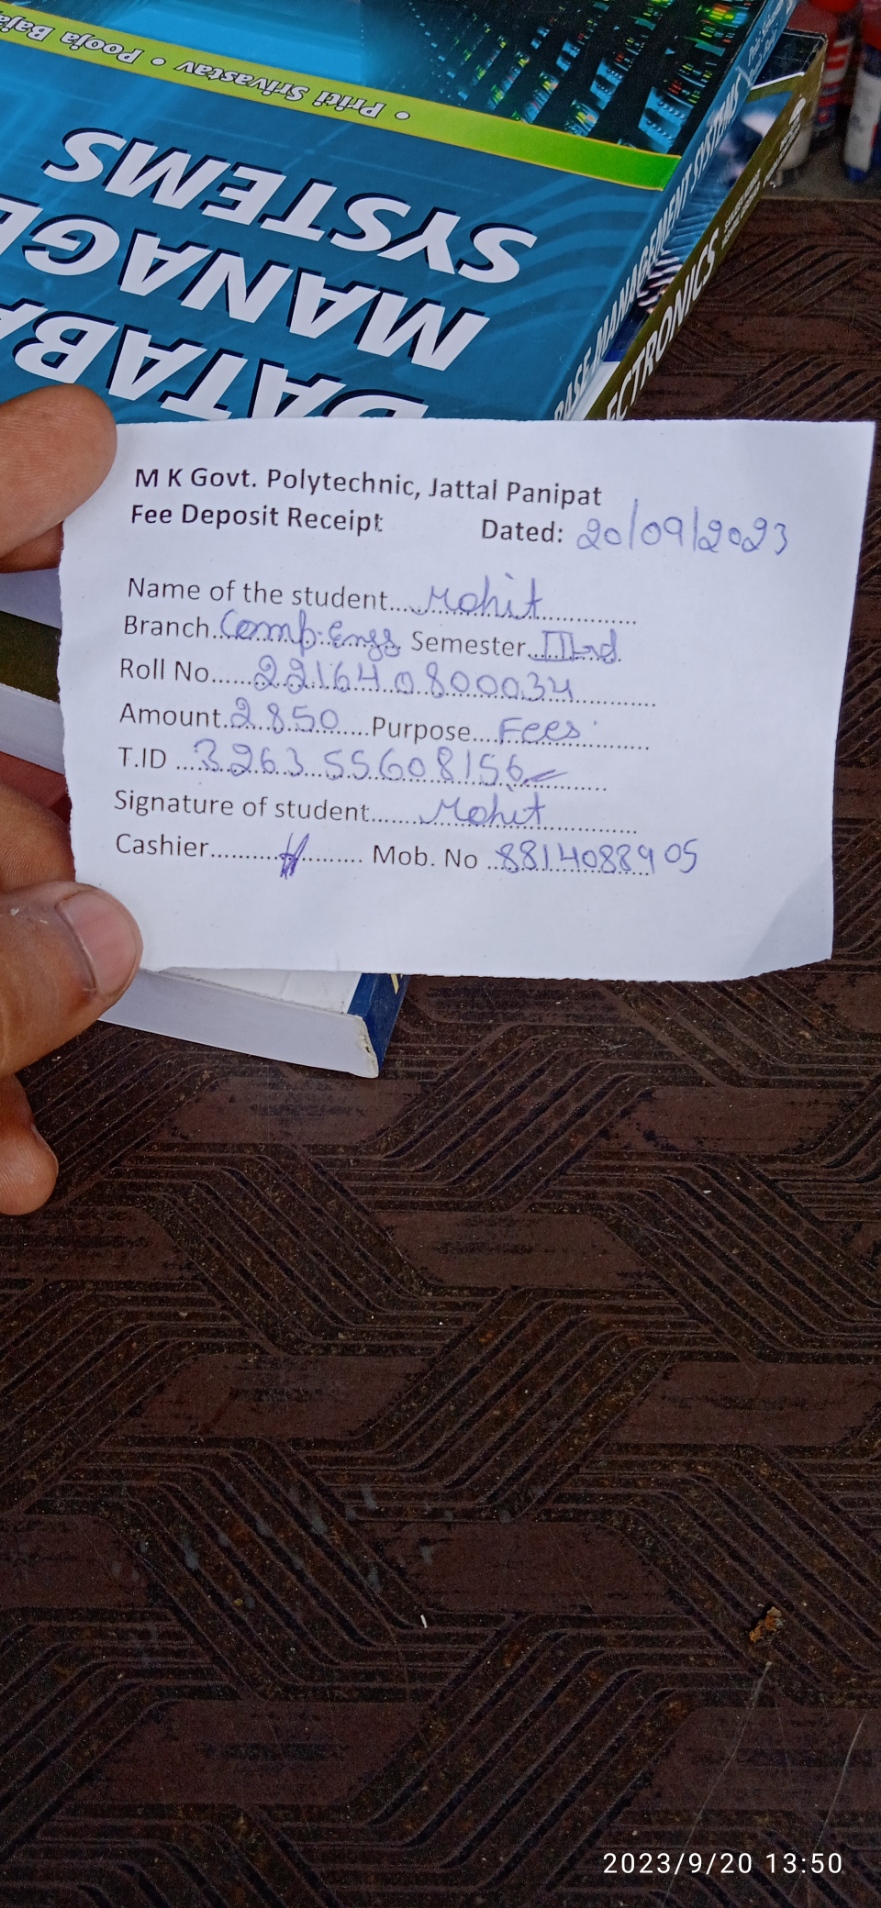 • Priti Srivastav • Pooja Bajaj
SYSTEMS
MANAGE
DATABA
BASE MANAGEMENT SYSTEMS
ECTRONICS
M K Govt. Polytechnic, Jattal Panipat
Fee Deposit Receipt Dated: 20/09/2023
Name of the student....Mohit..................
Branch..Comp. Engg. Semester..IIIrd.
Roll No......221640800034..............
Amount.2850.....Purpose...Fees.............
T.ID ...326355608156........
Signature of student......Mohit..................
Cashier..................... Mob. No ..8814088905
2023/9/20 13:50